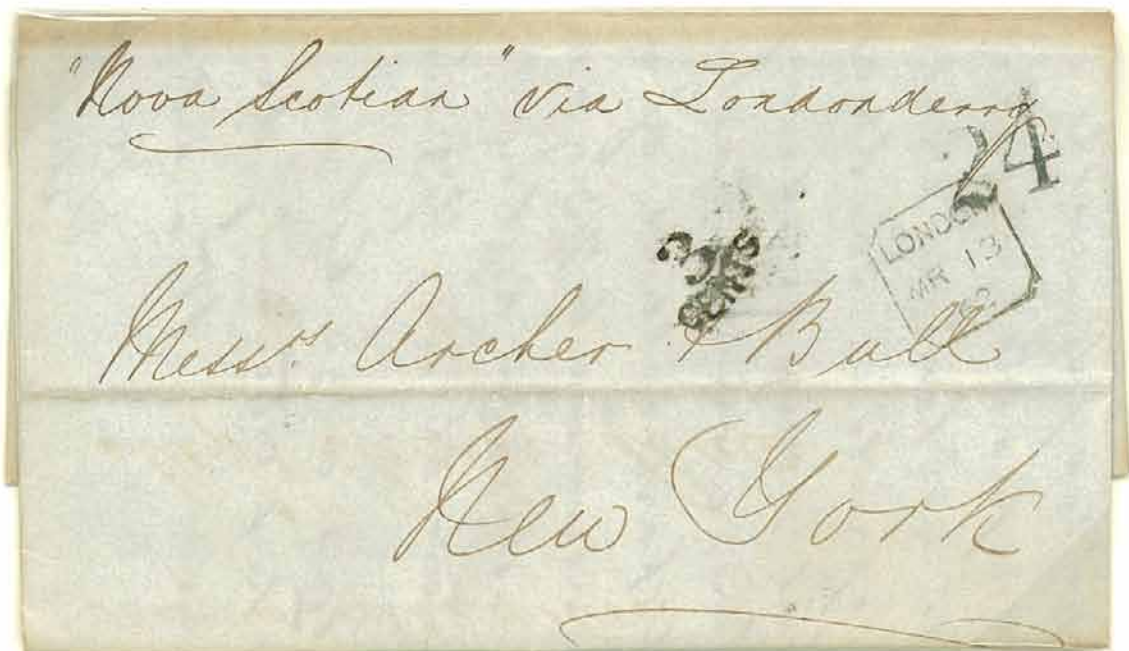 "Nova Scotian" via Londonderry
24
LONDON
MR 13
3
CENTS
Mess.rs Archer & Bull
New York